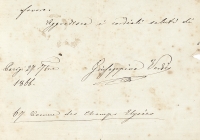 forme.
Aggradisca i cordiali saluti di
Giuseppina Verdi
Parigi 27
1866.
67 Avenue des Champs Elysées